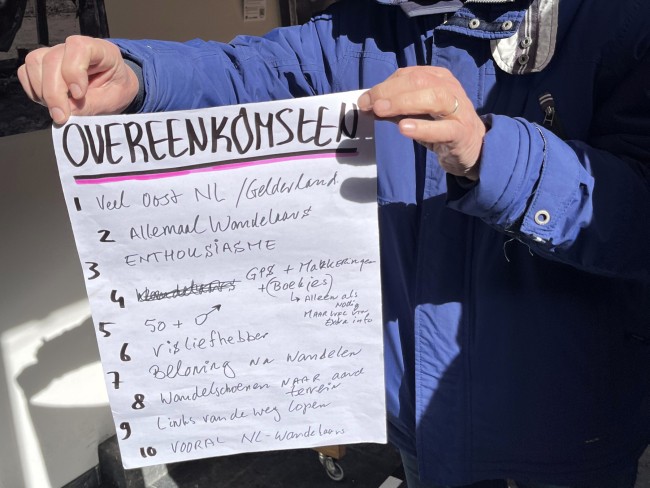 OVEREENKOMSTEN
1 Veel Oost NL / Gelderland
2 Allemaal Wandelaars
3 ENTHOUSIASME
4 Wandelaars GPS + Markeringen
+ (Boekjes)
↳ Alleen als
nodig
MAAR wel voor
Extra info
5 50 + ♂
6 Visliefhebber
7 Beloning na wandelen
8 Wandelschoenen NAAR aard
terrein
9 Links van de weg lopen
10 VOORAL NL-Wandelaars